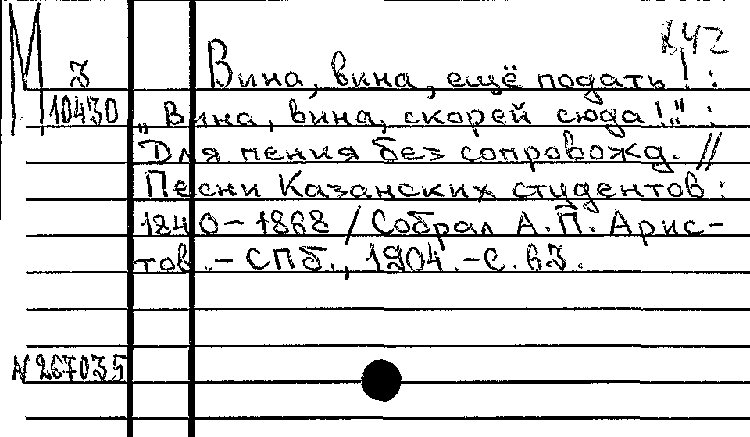 К42
М З
10430
Вина, вина, ещё подать! :
„Вина, вина, скорей сюда!" :
Для пения без сопровожд. //
Песни Казанских студентов:
1840-1868 / Собрал А.П. Арис-
тов. - СПб., 1904. - С. 63.
N 267035